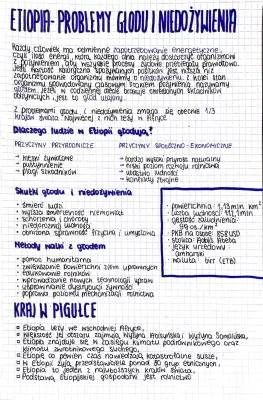 ETIOPIA - PROBLEMY GŁODU I NIEDOŻYWIENIA
Każdy człowiek ma odmienne zapotrzebowanie energetyczne,
czyli ilość energii, którą każdego dnia należy dostarczyć organizmowi
z pożywieniem, aby wszystkie procesy życiowe przebiegały prawidłowo.
Jeśli wartość kaloryczna spożywanych posiłków jest niższa niż
zapotrzebowanie organizmu mówimy o niedożywieniu. Z kolei stan
organizmu spowodowany całkowitym brakiem pożywienia nazywamy
głodem. Jeżeli w codziennej diecie brakuje określonych składników
odżywczych, jest to głód utajony.
Z problemami głodu i niedożywienia zmaga się obecnie 1/3
krajów świata. Najwięcej z nich leży w Afryce.
Dlaczego ludzie w Etiopii głodują?
PRZYCZYNY PRZYRODNICZE
→ klęski żywiołowe
→ pustynnienie
→ plagi szkodników
PRZYCZYNY SPOŁECZNO-EKONOMICZNE
→ bardzo wysoki przyrost naturalny
→ niski poziom rozwoju rolnictwa
→ ubóstwo ludności
→ konflikty zbrojne
Skutki głodu i niedożywienia
→ śmierć ludzi
→ wyższa śmiertelność niemowląt
→ schorzenia i choroby
→ niedorozwój ludności
→ obniżona sprawność fizyczna i umysłowa
Metody walki z głodem
→ pomoc humanitarna
→ zwiększanie powierzchni ziem uprawnych
→ edukowanie rolników
→ wprowadzanie nowych technologii upraw
→ usprawnianie dystrybucji żywności
→ poprawa poziomu mechanizacji rolnictwa
→ powierzchnia: 1,13 mln km²
→ liczba ludności: 112,1 mln
→ gęstość zaludnienia:
os./km²
→ PKB na osobę: 858 USD
→ stolica: Addis Abeba
→ język urzędowy:
amharski
→ waluta: birr (ETB)
KRAJ W PIGUŁCE
= Etiopia leży we wschodniej Afryce,
= większość jej obszaru zajmują Wyżyna Abisyńska i Wyżyna Somalijska,
= Etiopia znajduje się w zasięgu klimatu podrównikowego oraz
klimatu zwrotnikowego suchego,
= Etiopię co pewien czas nawiedzają katastrofalne susze,
= w Etiopii żyją przedstawiciele ponad 80 grup etnicznych,
= Etiopia to jeden z najuboższych krajów świata,
= Podstawą etiopskiej gospodarki jest rolnictwo